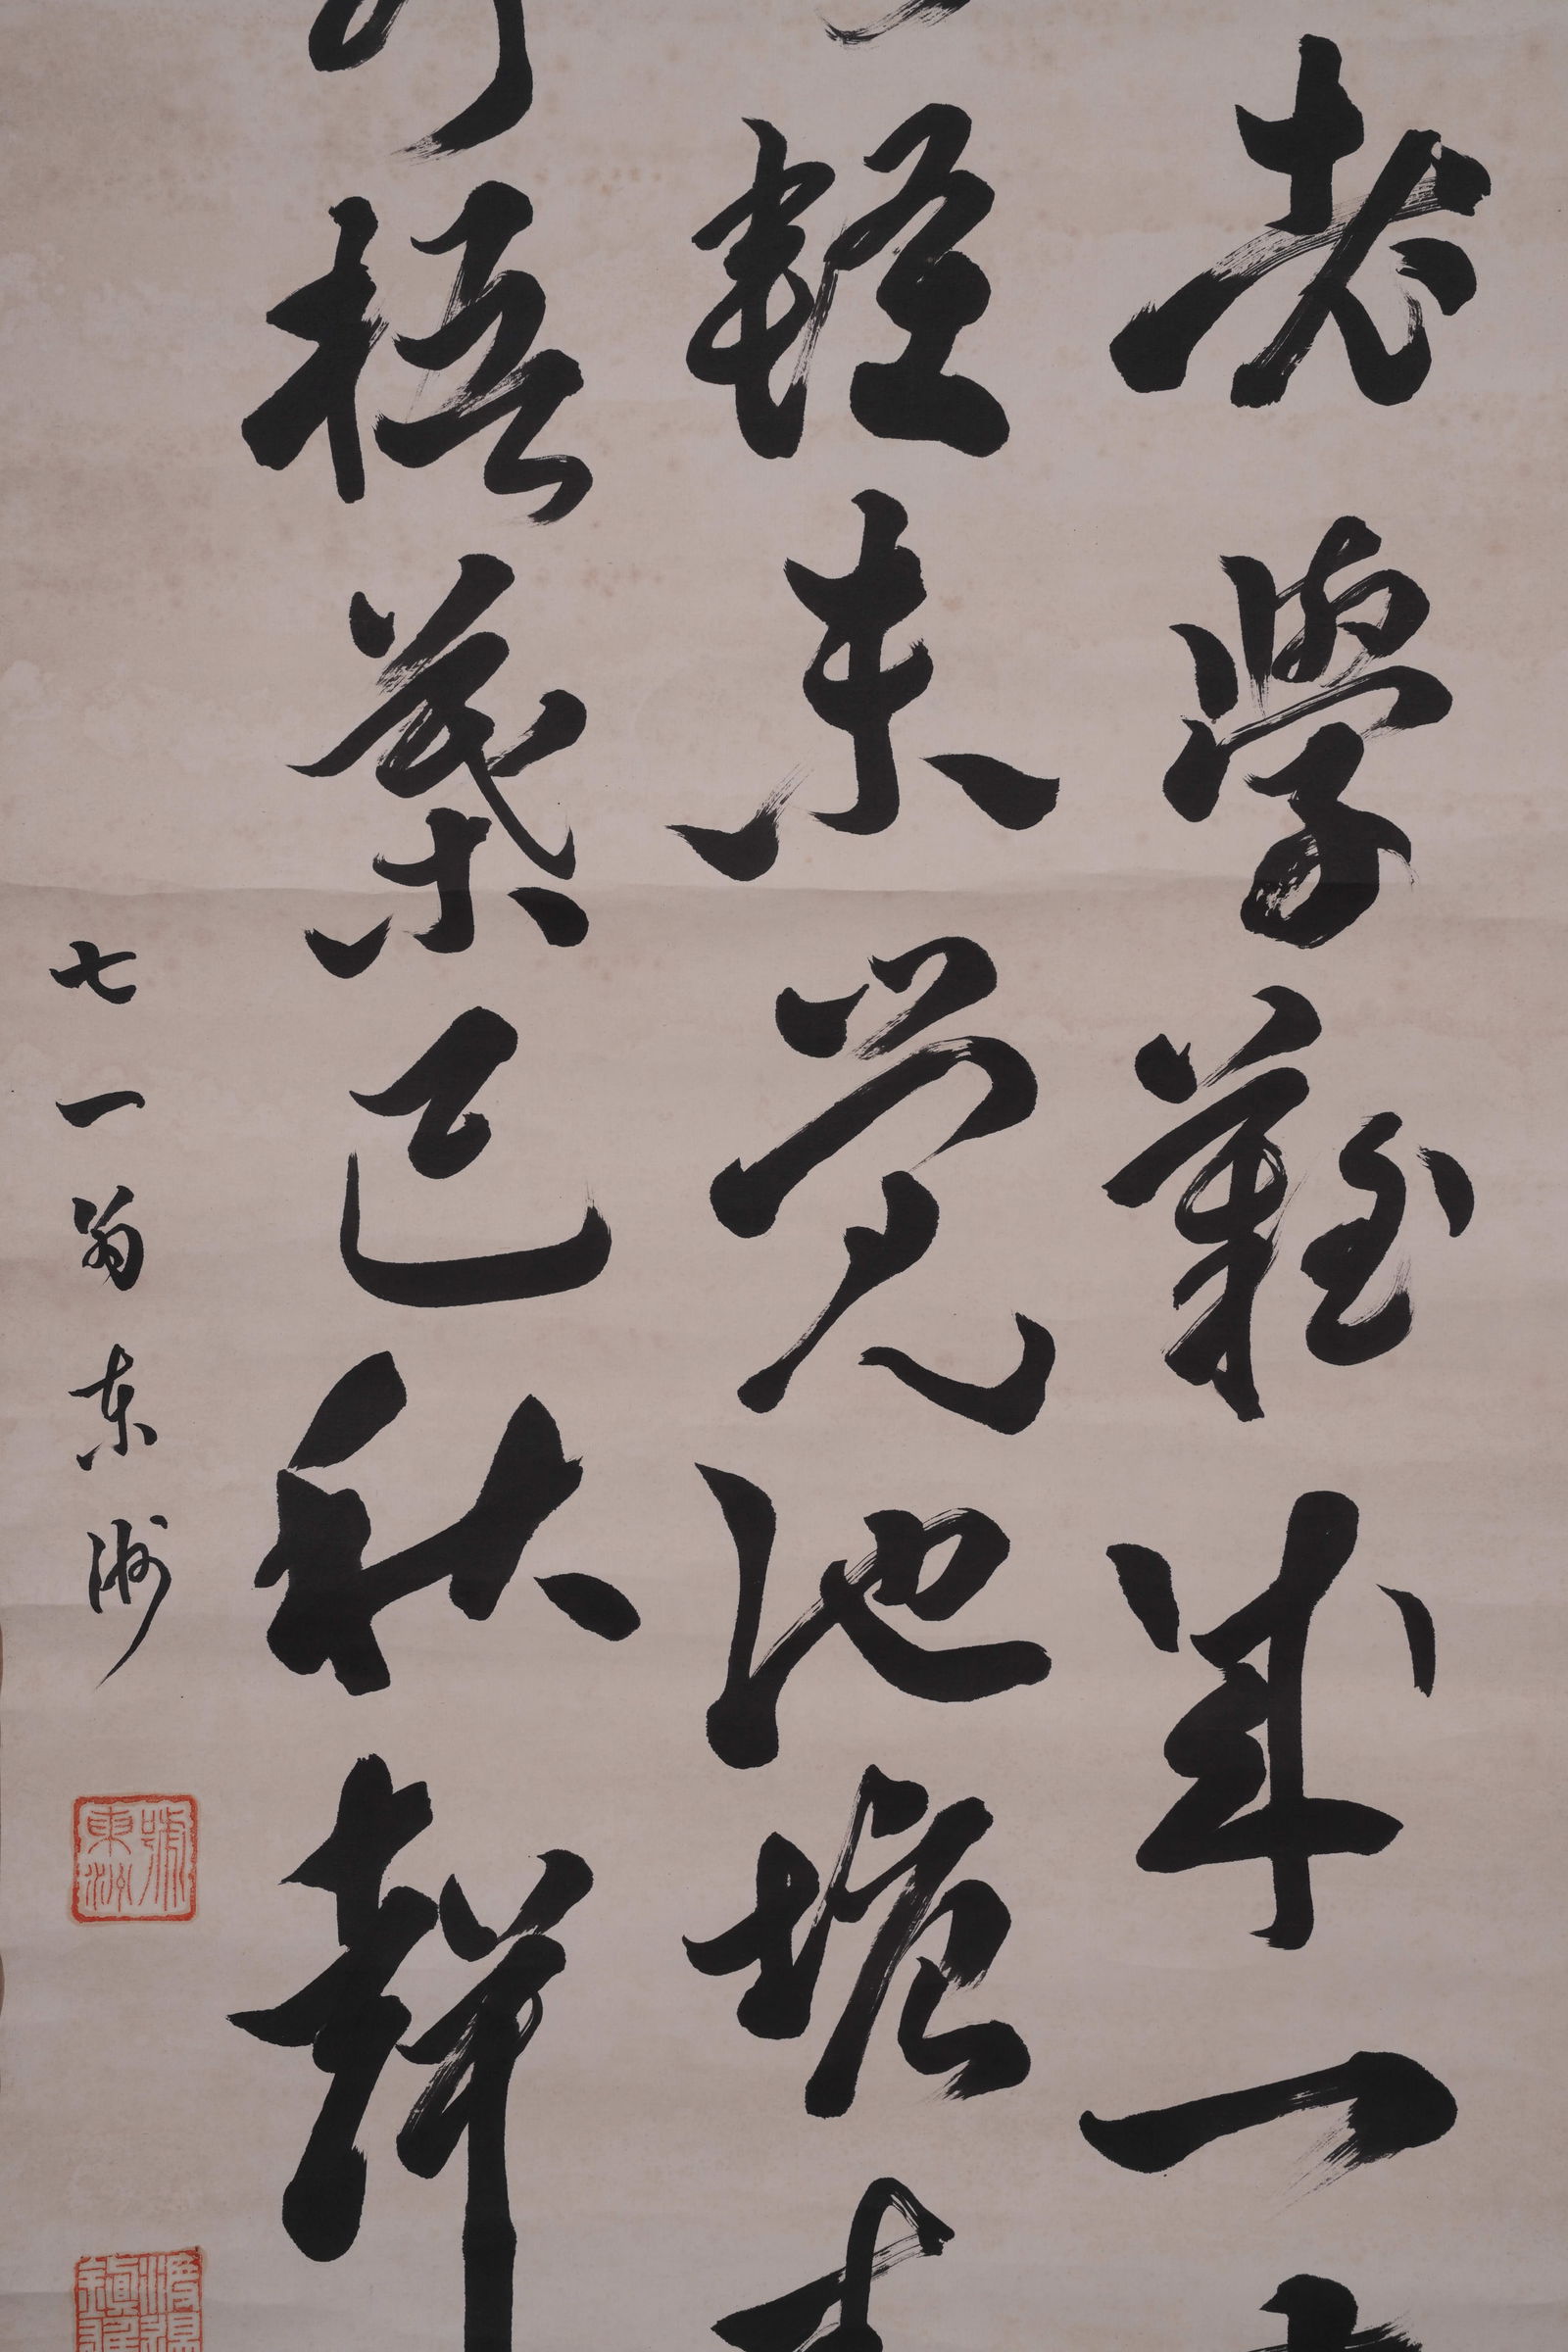 老學難成一
輕未覺池塘春
梧葉已秋聲
七一翁東洲
號東洲